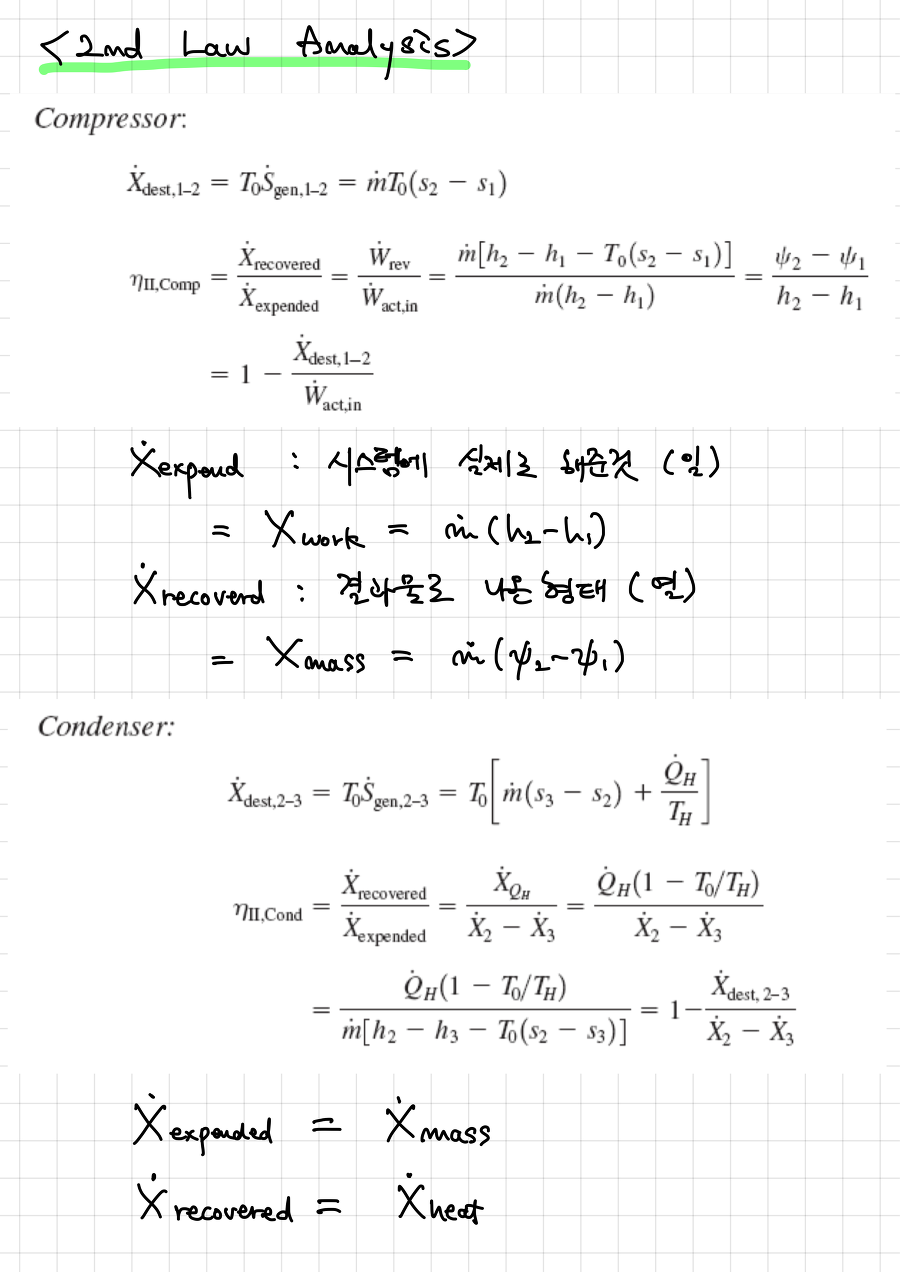 <2nd Law Analysis>
Compressor:
Ẋdest,1–2 = T0Ṡgen,1–2 = ṁT0(s2 − s1)
ηII,Comp = Ẋrecovered/Ẋexpended = Ẇrev/Ẇact,in = ṁ[h2 − h1 − T0(s2 − s1)]/ṁ(h2 − h1) = (ψ2 − ψ1)/(h2 − h1)
= 1 − Ẋdest,1–2/Ẇact,in
Ẋexpend : 시스템에 실제로 해준것 (일)
= Xwork = ṁ(h2-h1)
Ẋrecoverd : 결과물로 나온 형태 (열)
= Xmass = ṁ(ψ2-ψ1)
Condenser:
Ẋdest,2–3 = T0Ṡgen,2–3 = T0[ṁ(s3 − s2) + Q̇H/TH]
ηII,Cond = Ẋrecovered/Ẋexpended = ẊQH/(Ẋ2 − Ẋ3) = Q̇H(1 − T0/TH)/(Ẋ2 − Ẋ3)
= Q̇H(1 − T0/TH)/ṁ[h2 − h3 − T0(s2 − s3)] = 1 − Ẋdest, 2–3/(Ẋ2 − Ẋ3)
Ẋexpended = Ẋmass
Ẋrecovered = Ẋheat